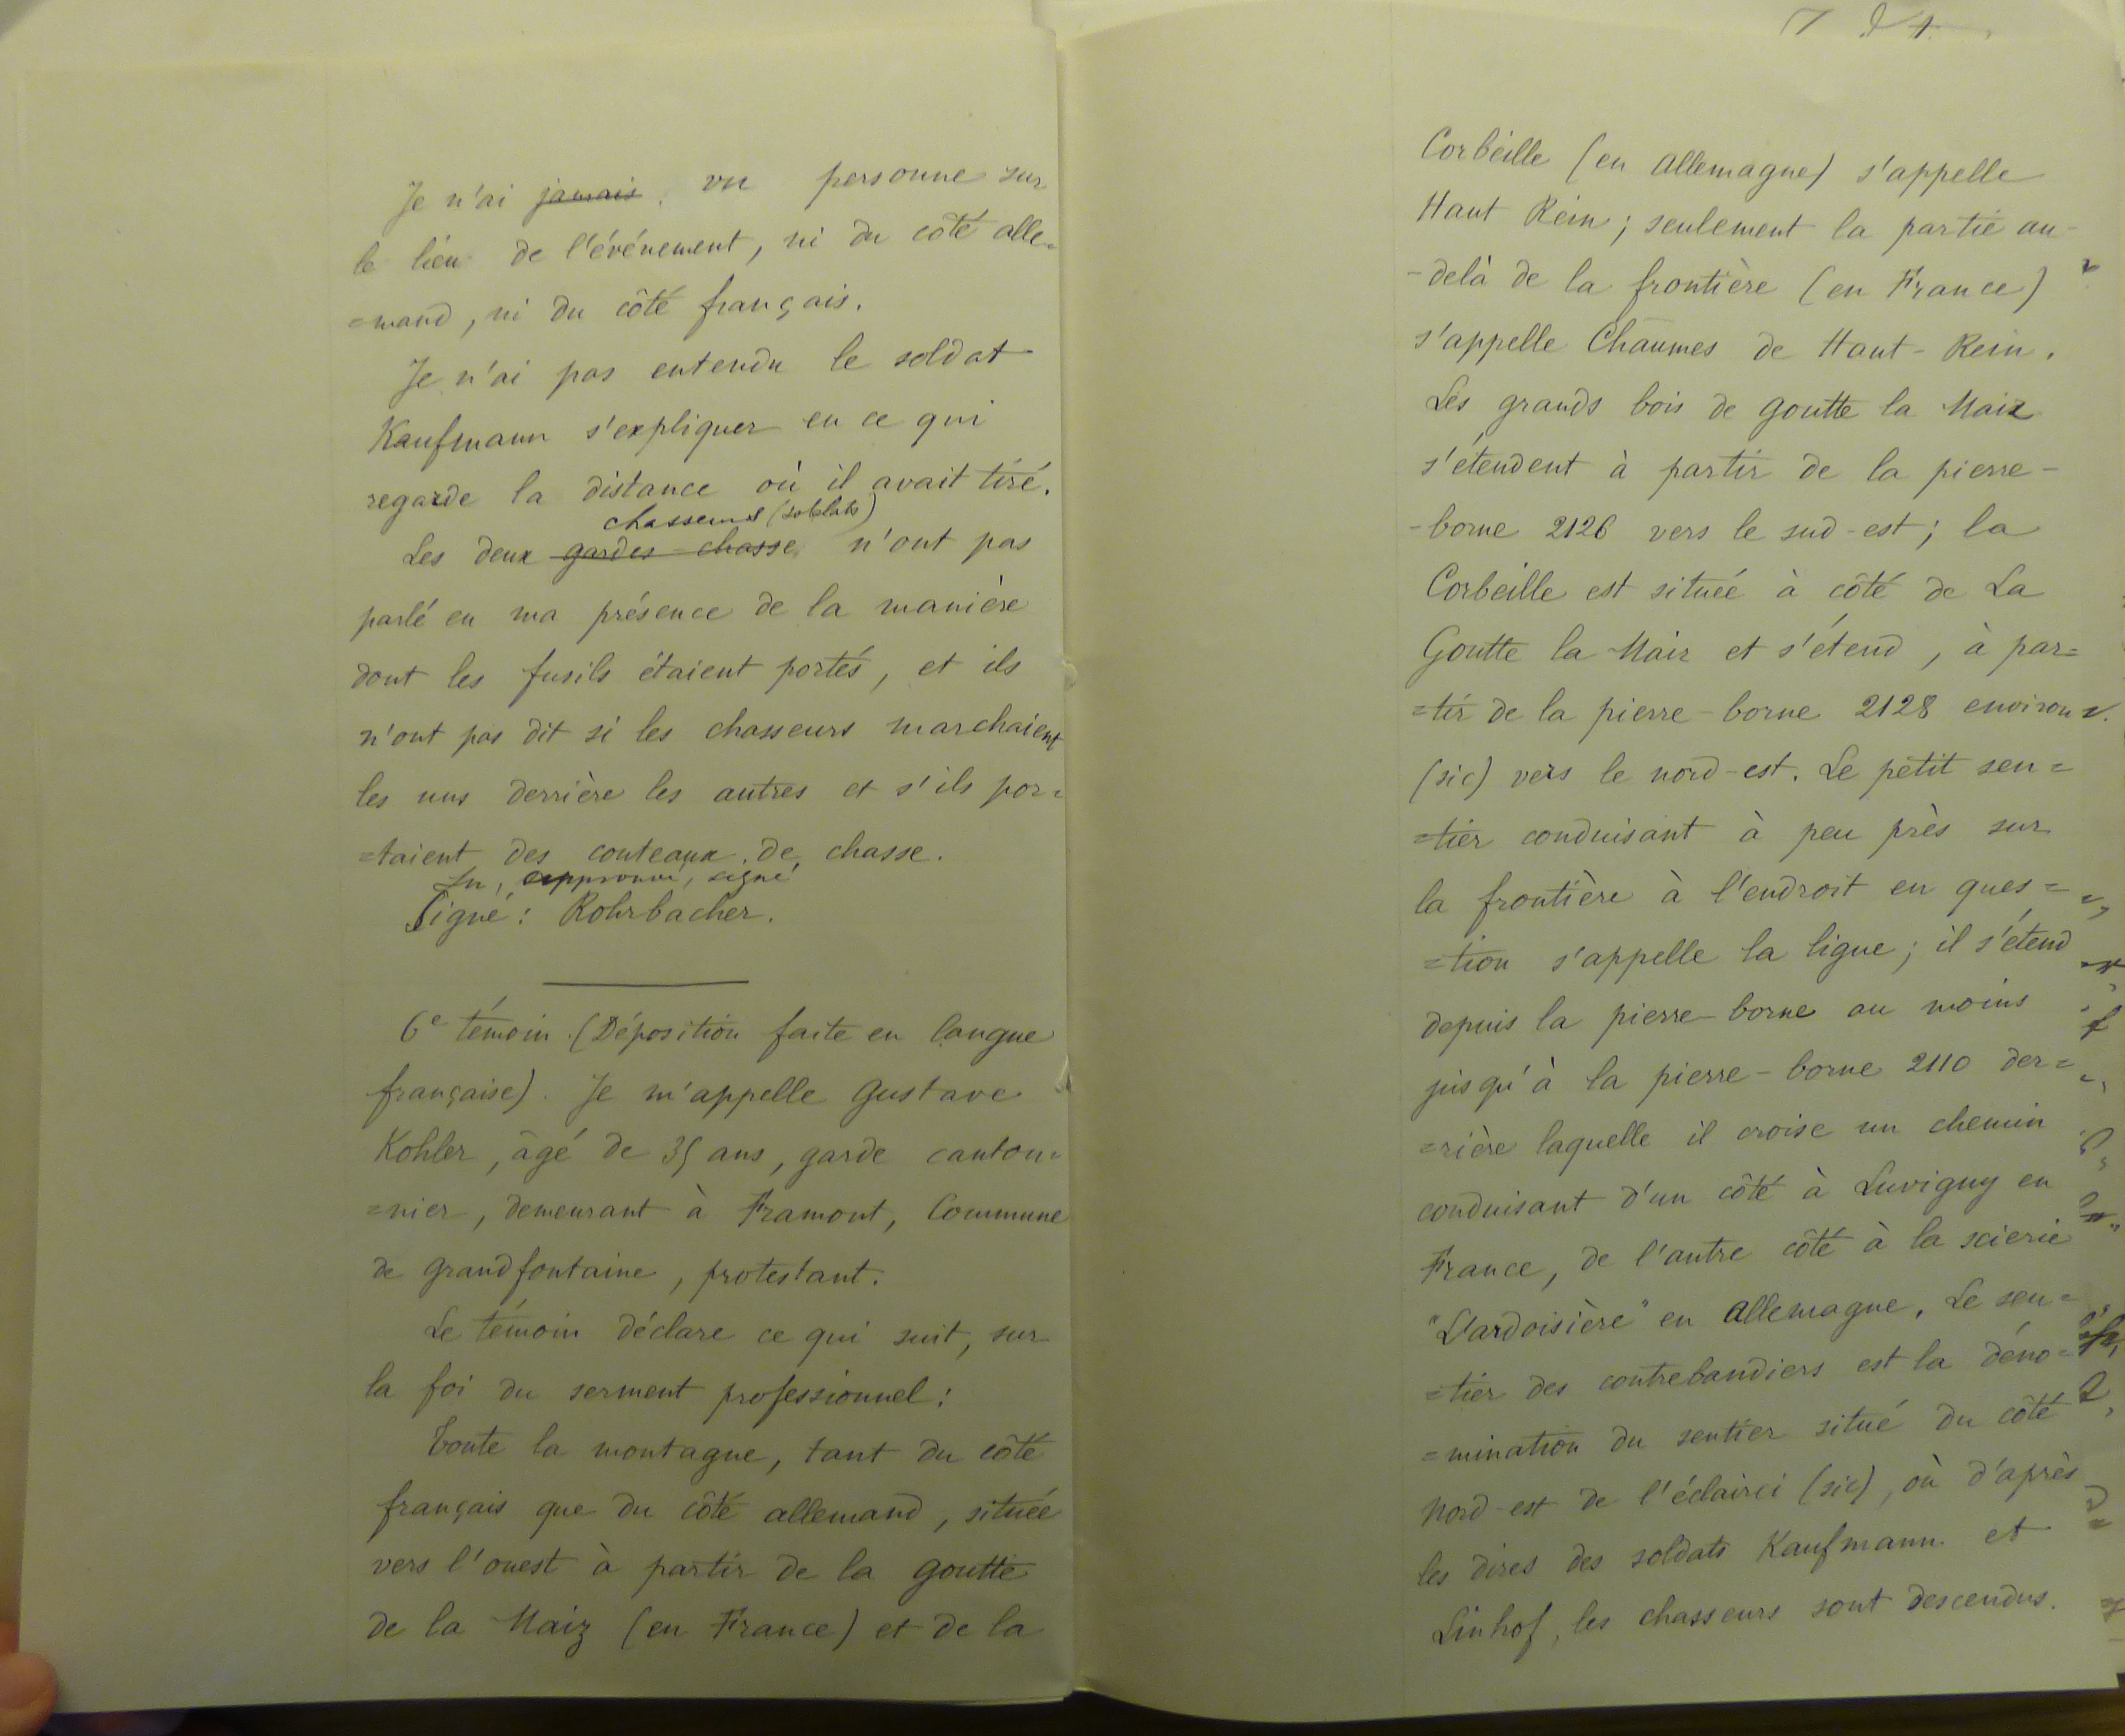 Je n'ai jamais vu personne sur
le lieu de l'événement, ni du côté alle=
=mand, ni du côté français.
Je n'ai pas entendu le soldat
Kaufmann s'expliquer en ce qui
regarde la distance où il avait tiré.
chasseurs (soldats)
Les deux gardes-chasse n'ont pas
parlé en ma présence de la manière
dont les fusils étaient portés, et ils
n'ont pas dit si les chasseurs marchaient
les uns derrière les autres et s'ils por=
=taient des couteaux de chasse.
Lu, approuvé, signé
Signé : Rohrbacher.
6e témoin. (Déposition faite en langue
française). Je m'appelle Gustave
Kohler, âgé de 35 ans, garde canton=
=nier, demeurant à Framont, Commune
de Grandfontaine, protestant.
Le témoin déclare ce qui suit, sur
la foi du serment professionnel :
Toute la montagne, tant du côté
français que du côté allemand, située
vers l'ouest à partir de la Goutte
de la Maiz (en France) et de la
Corbeille (en Allemagne) s'appelle
Haut Rein ; seulement la partie au-
-delà de la frontière (en France)
s'appelle Chaumes de Haut-Rein.
Les grands bois de Goutte la Maix
s'étendent à partir de la pierre-
-borne 2126 vers le sud-est ; la
Corbeille est située à côté de La
Goutte la Maix et s'étend, à par=
=tir de la pierre-borne 2128 environ
(sic) vers le nord-est. Le petit sen=
=tier conduisant à peu près sur
la frontière à l'endroit en ques=
=tion s'appelle la ligne ; il s'étend
depuis la pierre-borne au moins
jusqu'à la pierre-borne 2110 der=
=rière laquelle il croise un chemin
conduisant d'un côté à Luvigny en
France, de l'autre côté à la scierie
"L'ardoisière" en Allemagne. Le sen=
=tier des contrebandiers est la déno=
=mination du sentier situé du côté
nord-est de l'éclairci (sic), où d'après
les dires des soldats Kaufmann et
Linhof, les chasseurs sont descendus.